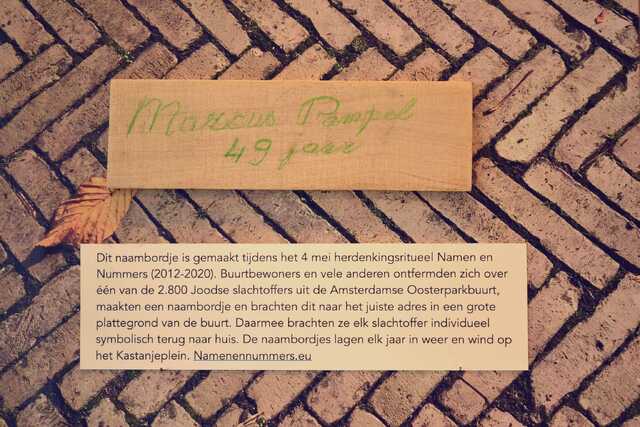 Marcus Pampel
49 jaar
Dit naambordje is gemaakt tijdens het 4 mei herdenkingsritueel Namen en
Nummers (2012-2020). Buurtbewoners en vele anderen ontfermden zich over
één van de 2.800 Joodse slachtoffers uit de Amsterdamse Oosterparkbuurt,
maakten een naambordje en brachten dit naar het juiste adres in een grote
plattegrond van de buurt. Daarmee brachten ze elk slachtoffer individueel
symbolisch terug naar huis. De naambordjes lagen elk jaar in weer en wind op
het Kastanjeplein. Namenennummers.eu